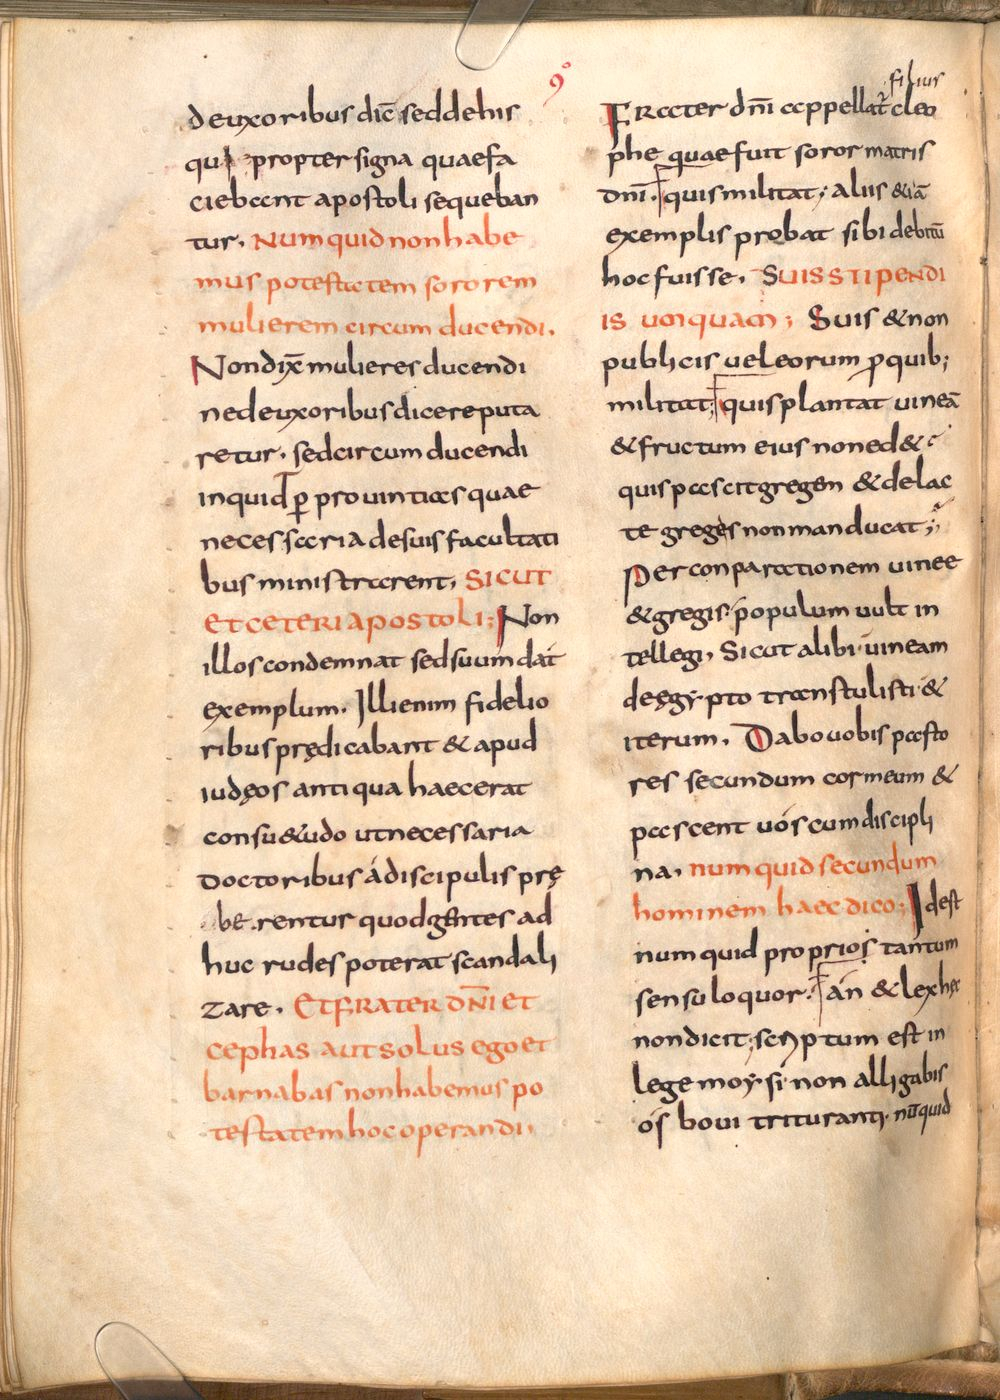 9º
de uxoribus dic̄ sed de his
qui propter signa quae fa
ciebant apostoli sequeban
tur. Numquid non habe
mus potestatem sororem
mulierem circum ducendi.
Non dix̄ mulieres ducendi
ne de uxoribus dicere puta
retur. sed circum ducendi
inquid ꝑ prouintias quae
necessaria de suis facultati
bus ministrarent. Sicut
et ceteri apostoli; Non
illos condemnat sed suum dat
exemplum. Illi enim fidelio
ribus prędicabant & apud
iudęos antiqua haec erat
consu&udo ut necessaria
doctoribus á discipulis prę
berentur quod gentes ad
huc rudes poterat scandali
zare. Et frater dn̄i et
cephas aut solus ego et
barnabas non habemus po
testatem hoc operandi
filius
Frater dn̄i appellat̄ cleo
phe quae fuit soror matris
dn̄i. quis militat; aliis &iā
exemplis probat sibi debitū
hoc fuisse. Suis stipendi
is umquam; Suis & non
publicis uel eorum ꝑ quib;
militat; quis plantat uineā
& fructum eius non ed&
quis pascit gregem & de lac
te gregis non manducat;
Per conparationem uinee
& gregis populum uult in
tellegi. Sicut alibi uineam
de ęgypto transtulisti &
iterum. Dabo uobis pasto
res secundum cor meum &
pascent uós cum discipli
na. numquid secundum
hominem haec dico; Id est
numquid proprios tantum
sensu loquor. án & lex hęc
non dicit; scriptum est in
lege moysi non alligabis
ós boui trituranti. nūquid